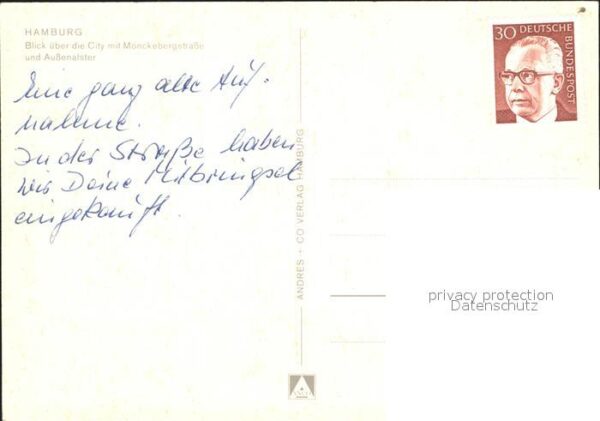 HAMBURG
Blick über die City mit Mönckebergstraße
und Außenalster
Eine ganz alte Auf-
nahme.
In der Straße haben
wir Deine Mitbringsel
eingekauft.
ANDRES + CO VERLAG HAMBURG
30 DEUTSCHE
BUNDESPOST
privacy protection
Datenschutz